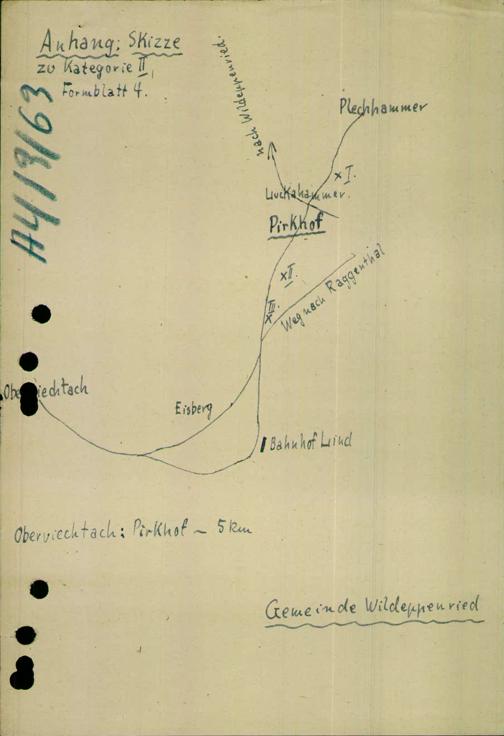 Anhang: Skizze
zu Kategorie II,
Formblatt 4.
A4/3/63
nach Wildeppenried.
Plechhammer
x I.
Luckahammer.
Pirkhof
x II.
III.
x
Weg nach Raggenthal
Oberviechtach
Eisberg
Bahnhof Lind
Oberviechtach: Pirkhof ~ 5 km
Gemeinde Wildeppenried